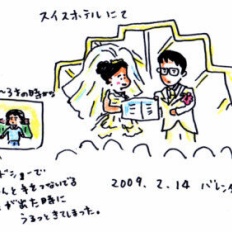 スイスホテルにて
〜3才の時から
ドショーで
んと手をつないでる
が出た時に
うるっときてしまった。
2009. 2. 14 バレンタ